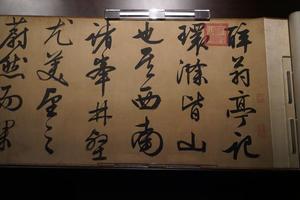 醉翁亭記
環滁皆山
也其西南
諸峯林壑
尤美望之
蔚然而